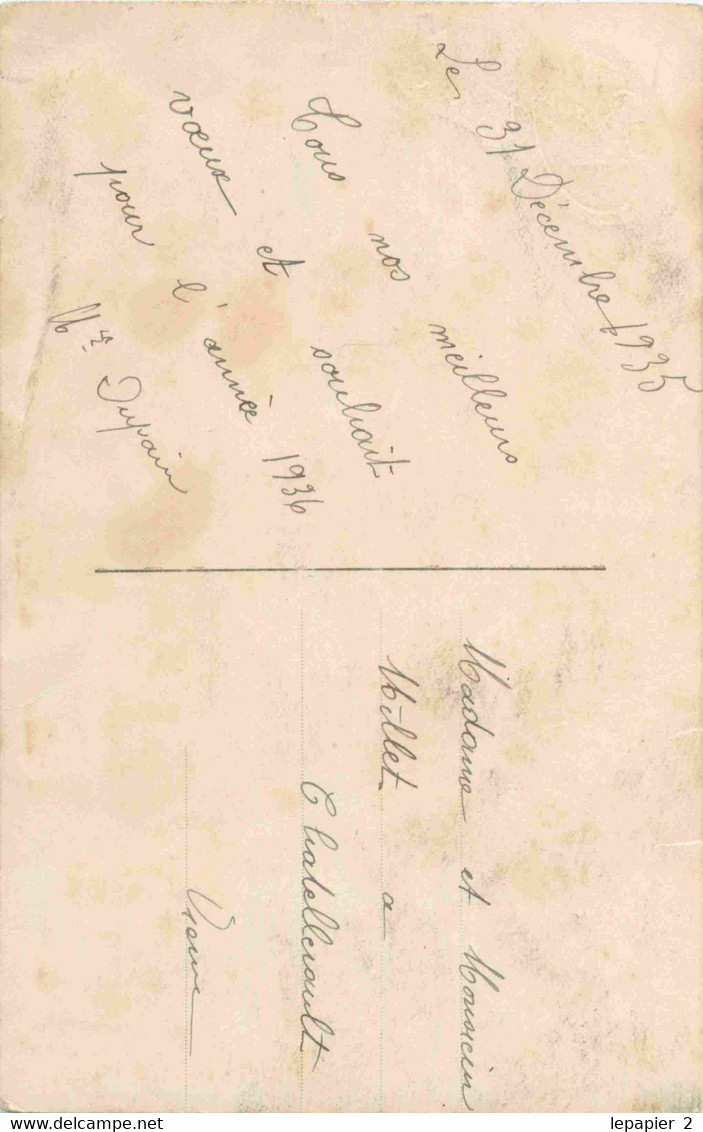 Le 31 Décembre 1935
Tous nos meilleurs
vœux et souhait
pour l'année 1936
Mr Dupain
Madame et Monsieur
Millet a
Chatellerault
Vienne
delcampe.net
lepapier 2